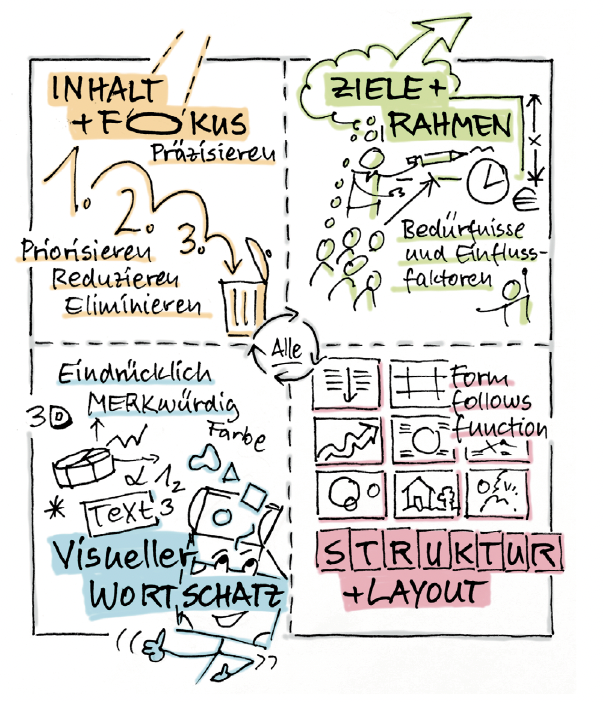 INHALT
+ FOKUS
Präzisieren
1.
2.
3.
Priorisieren
Reduzieren
Eliminieren
ZIELE +
RAHMEN
x
€
Bedürfnisse
und Einfluss-
faktoren
Alle
Eindrücklich
MERKwürdig
3D
Farbe
α 1 2
* Text 3
Visueller
WORTSCHATZ
Form
follows
function
STRUKTUR
+ LAYOUT